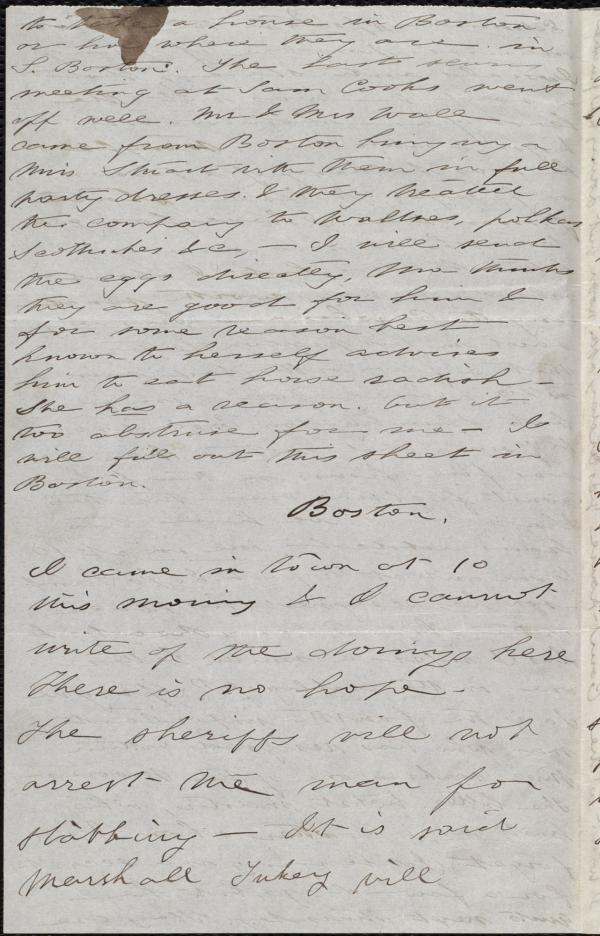 to take a house in Boston
or hire where they are in
S. Boston. The last sewing
meeting at Sam Cooks went
off well. Mr & Mrs Wall
came from Boston bringing a
Miss Stuart with them in full
party dresses. & they treated
the company to waltzes, polkas
Scottisches &c, — I will send
the eggs directly, Mrs thinks
they are good for him &
for some reason best
known to herself advises
him to eat horse radish —
She has a reason. but it
too abstruse for me — I
will fill out this sheet in
Boston.
Boston.
I came in town at 10
this morning & I cannot
write of the doings here
There is no hope —
The sheriffs will not
arrest the man for
stabbing — It is said
Marshall Tukey will